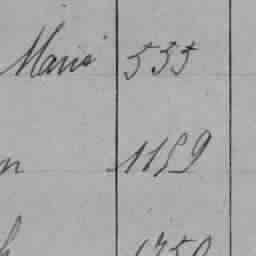 Marie 535
n 1159
h 1750